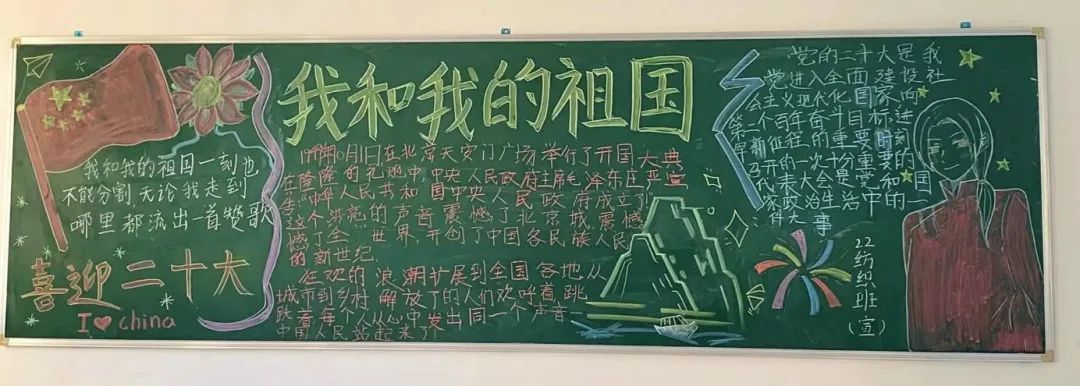 我和我的祖国一刻也
不能分割,无论我走到
哪里都流出一首赞歌
喜迎二十大
I❤china
我和我的祖国
1949年10月1日在北京天安门广场举行了开国大典
在隆隆的礼炮中,中央人民政府主席毛泽东庄严宣
告"中华人民共和国中央人民政府成立了"
这个洪亮的声音震憾了北京城,震憾
憾了全世界,开创了中国各民族人民
的新世纪.
狂欢的浪潮扩展到全国各地,从
城市到乡村,解放了的人们欢呼着,跳
跃着每个人从心中发出同一个声音—
中国人民站起来了!
党的二十大是我
党进入全面建设社
会主义现代化国家向
第二个百年奋斗目标进
新征程的重要时刻
的一次十分重要的
代表大会是党和国
家政治生活中的一
件大事
22纺织班
(宣)